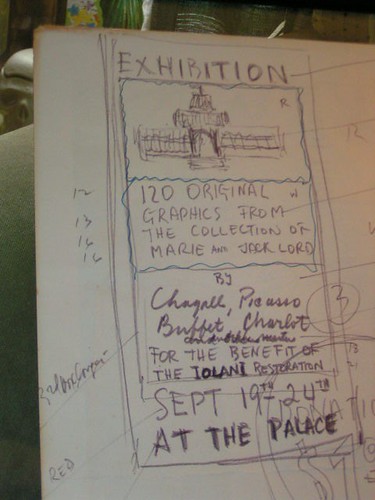 EXHIBITION
R
120 ORIGINAL W
GRAPHICS FROM
THE COLLECTION OF
MARIE AND JACK LORD
BY
Chagall, Picasso
Buffet, Charlot
and other masters
FOR THE BENEFIT OF
THE IOLANI RESTORATION
SEPT 19TH - 24TH
AT THE PALACE
12
13
16
16
3
RED